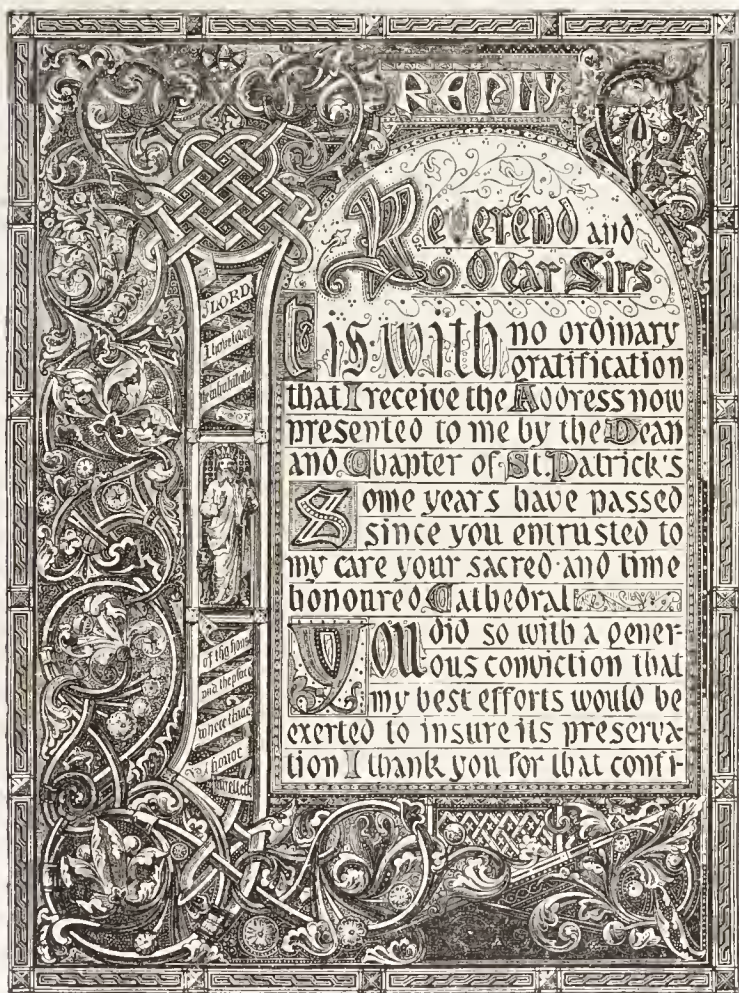 REPLY
Reverend and
Dear Sirs
It is with no ordinary
gratification
that I receive the Address now
presented to me by the Dean
and Chapter of St. Patrick's
Some years have passed
since you entrusted to
my care your sacred and time
honoured Cathedral
You did so with a gener-
ous conviction that
my best efforts would be
exerted to insure its preserva-
tion I thank you for that confi-
LORD
I have loved
the habitation
of thy house
and the place
where thine
honor
dwelleth